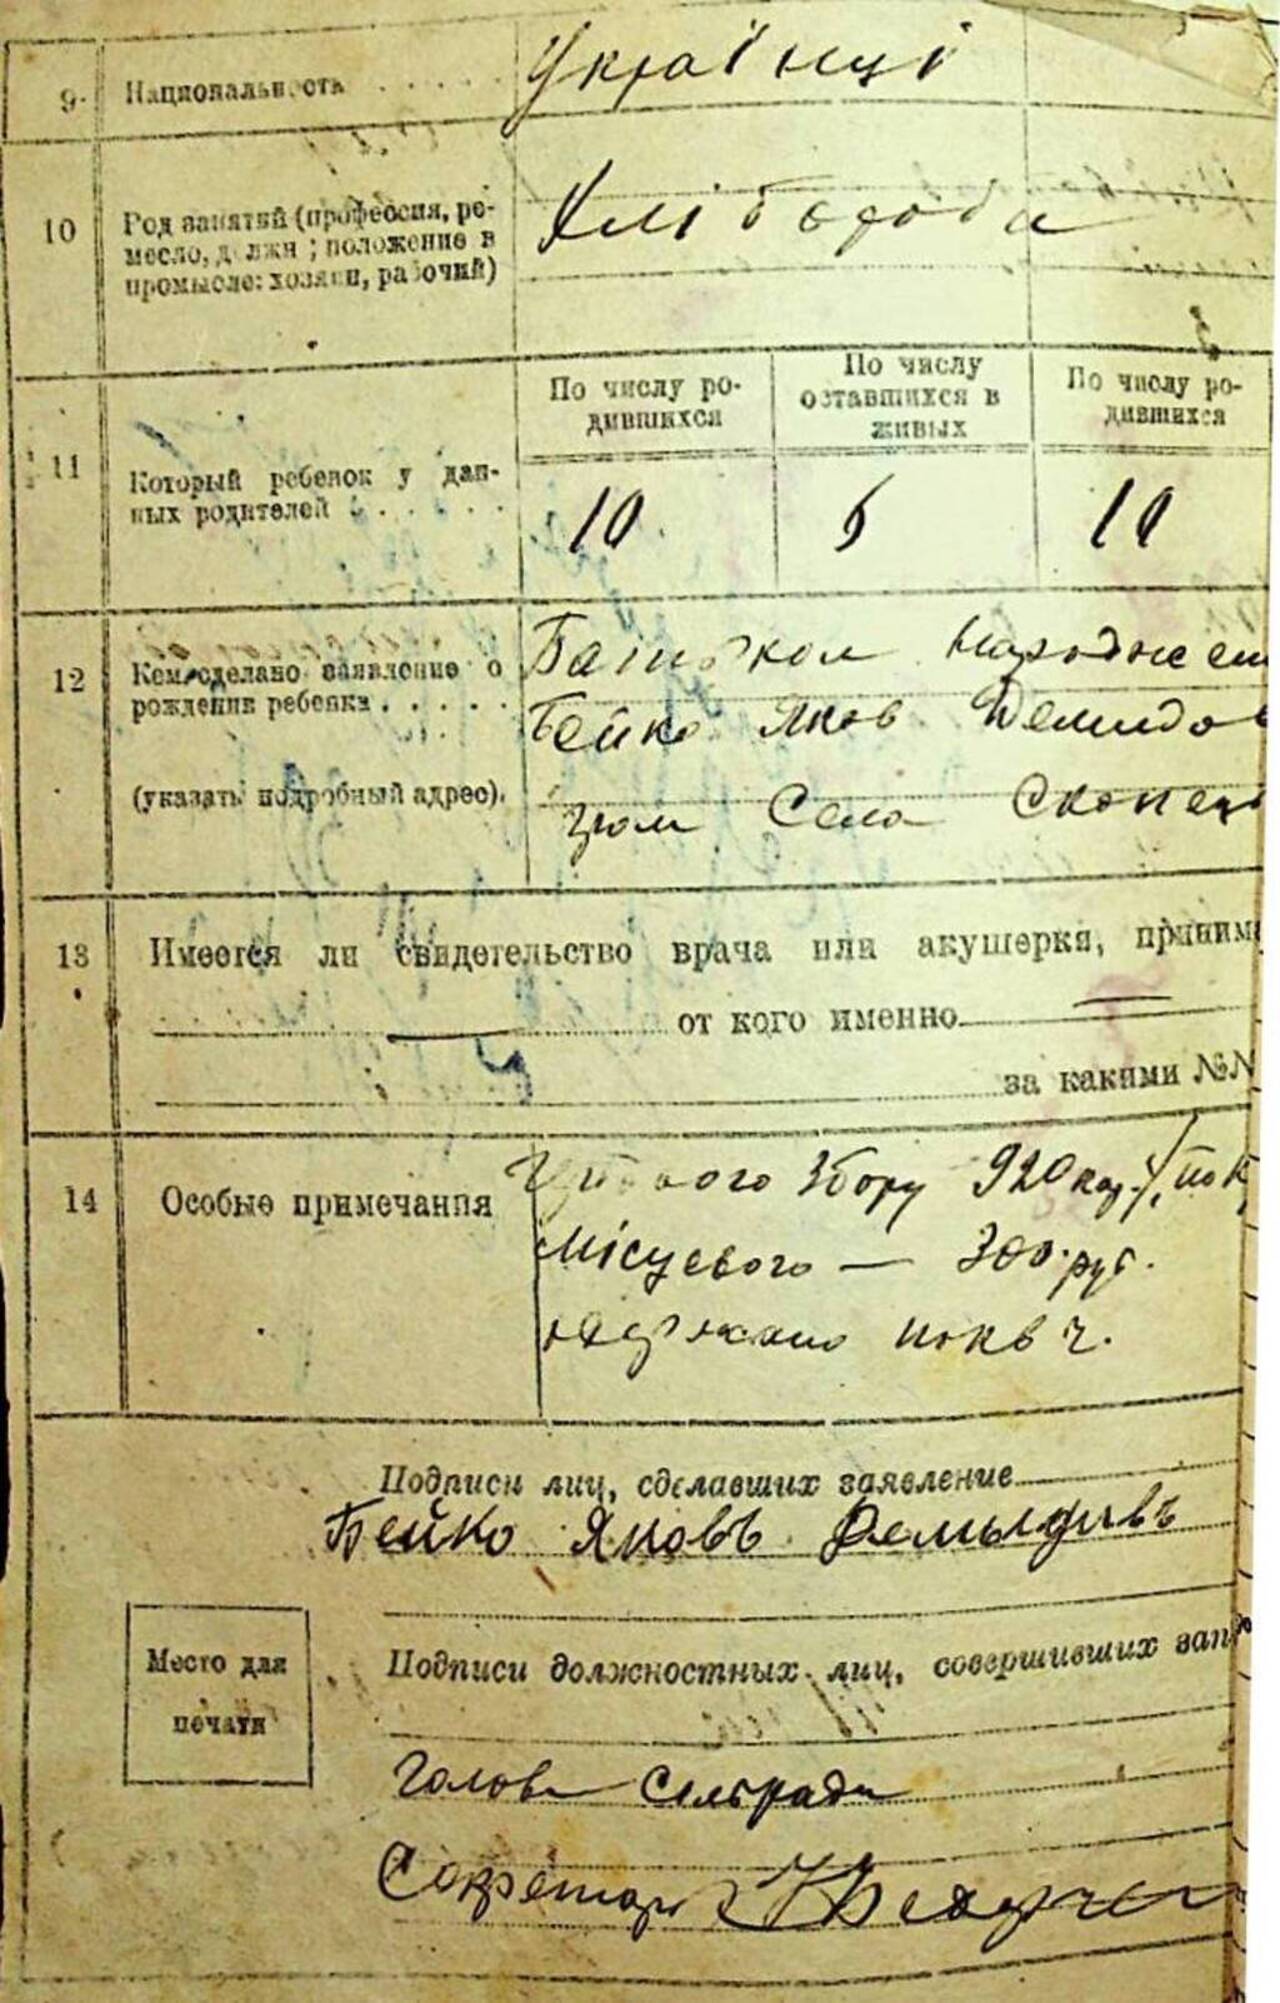 9. Национальность . . . . Українці
10 Род занятий (профессия, ре-
месло, должн ; положение в
промысле: хозяин, рабочий)
Хлібороба
По числу ро-
дившихся
По числу
оставшихся в
живых
По числу ро-
дившихся
11 Который ребенок у дан-
ных родителей . . . . .
10 10
12 Кем сделано заявление о
рождении ребенка . . . . .
(указать подробный адрес).
Батьком
Бейко Яков Демидов
гром Села
13 Имеется ли свидетельство врача или акушерки, приним
от кого именно
за какими №N
14 Особые примечания
збору 920
Місцевого — 300 руб.
Подписи лиц, сделавших заявление
Бейко Яковъ
Место для
печати
Подписи должностных лиц, совершивших зап
Голова Сельради
Секретарь